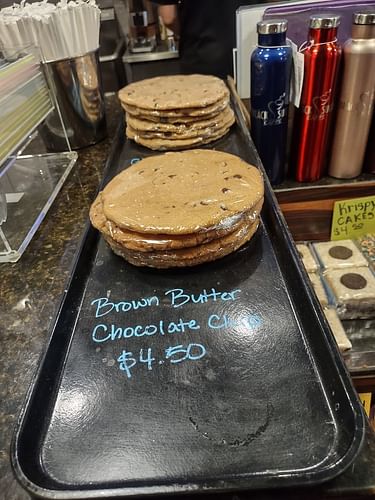 Brown Butter
Chocolate Chip
$4.50
Krispy
CAKES
$4.50